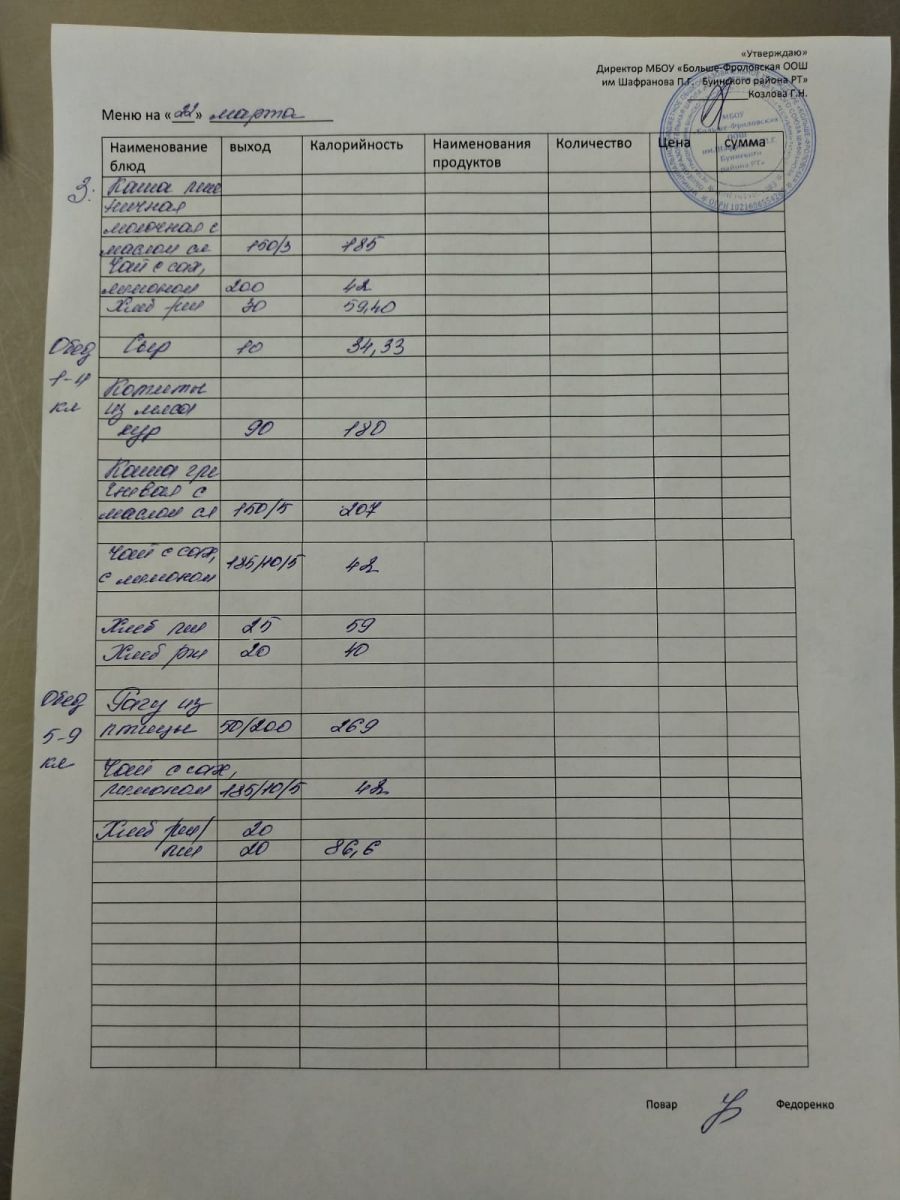 «Утверждаю»
Директор МБОУ «Больше-Фроловская ООШ
им Шафранова П.Г. Буинского района РТ»
Козлова Г.Н.
Меню на «22» марта
Наименование блюд выход Калорийность Наименования продуктов Количество Цена сумма
МБОУ
Больше-Фроловская
ООШ
им.Шафранова П.Г.
Буинского
района РТ
З: Каша пше
ничная
молочная с
маслом сл 150/3 185
Чай с сах,
лимоном 200 42
Хлеб 30 59,40
Обед Сыр 10 34,33
1-4
кл
Котлеты
из мяса
кур 90 180
Каша гре
чневая с
маслом сл 150/5 207
Чай с сах,
с лимоном 185/10/5 42
Хлеб пш 25 59
Хлеб рж 20 40
Обед Рагу из
5-9 птицы 50/200 269
кл
Чай с сах,
лимоном 185/10/5 42
Хлеб рж/ 20
пш 20 86,6
Повар Федоренко